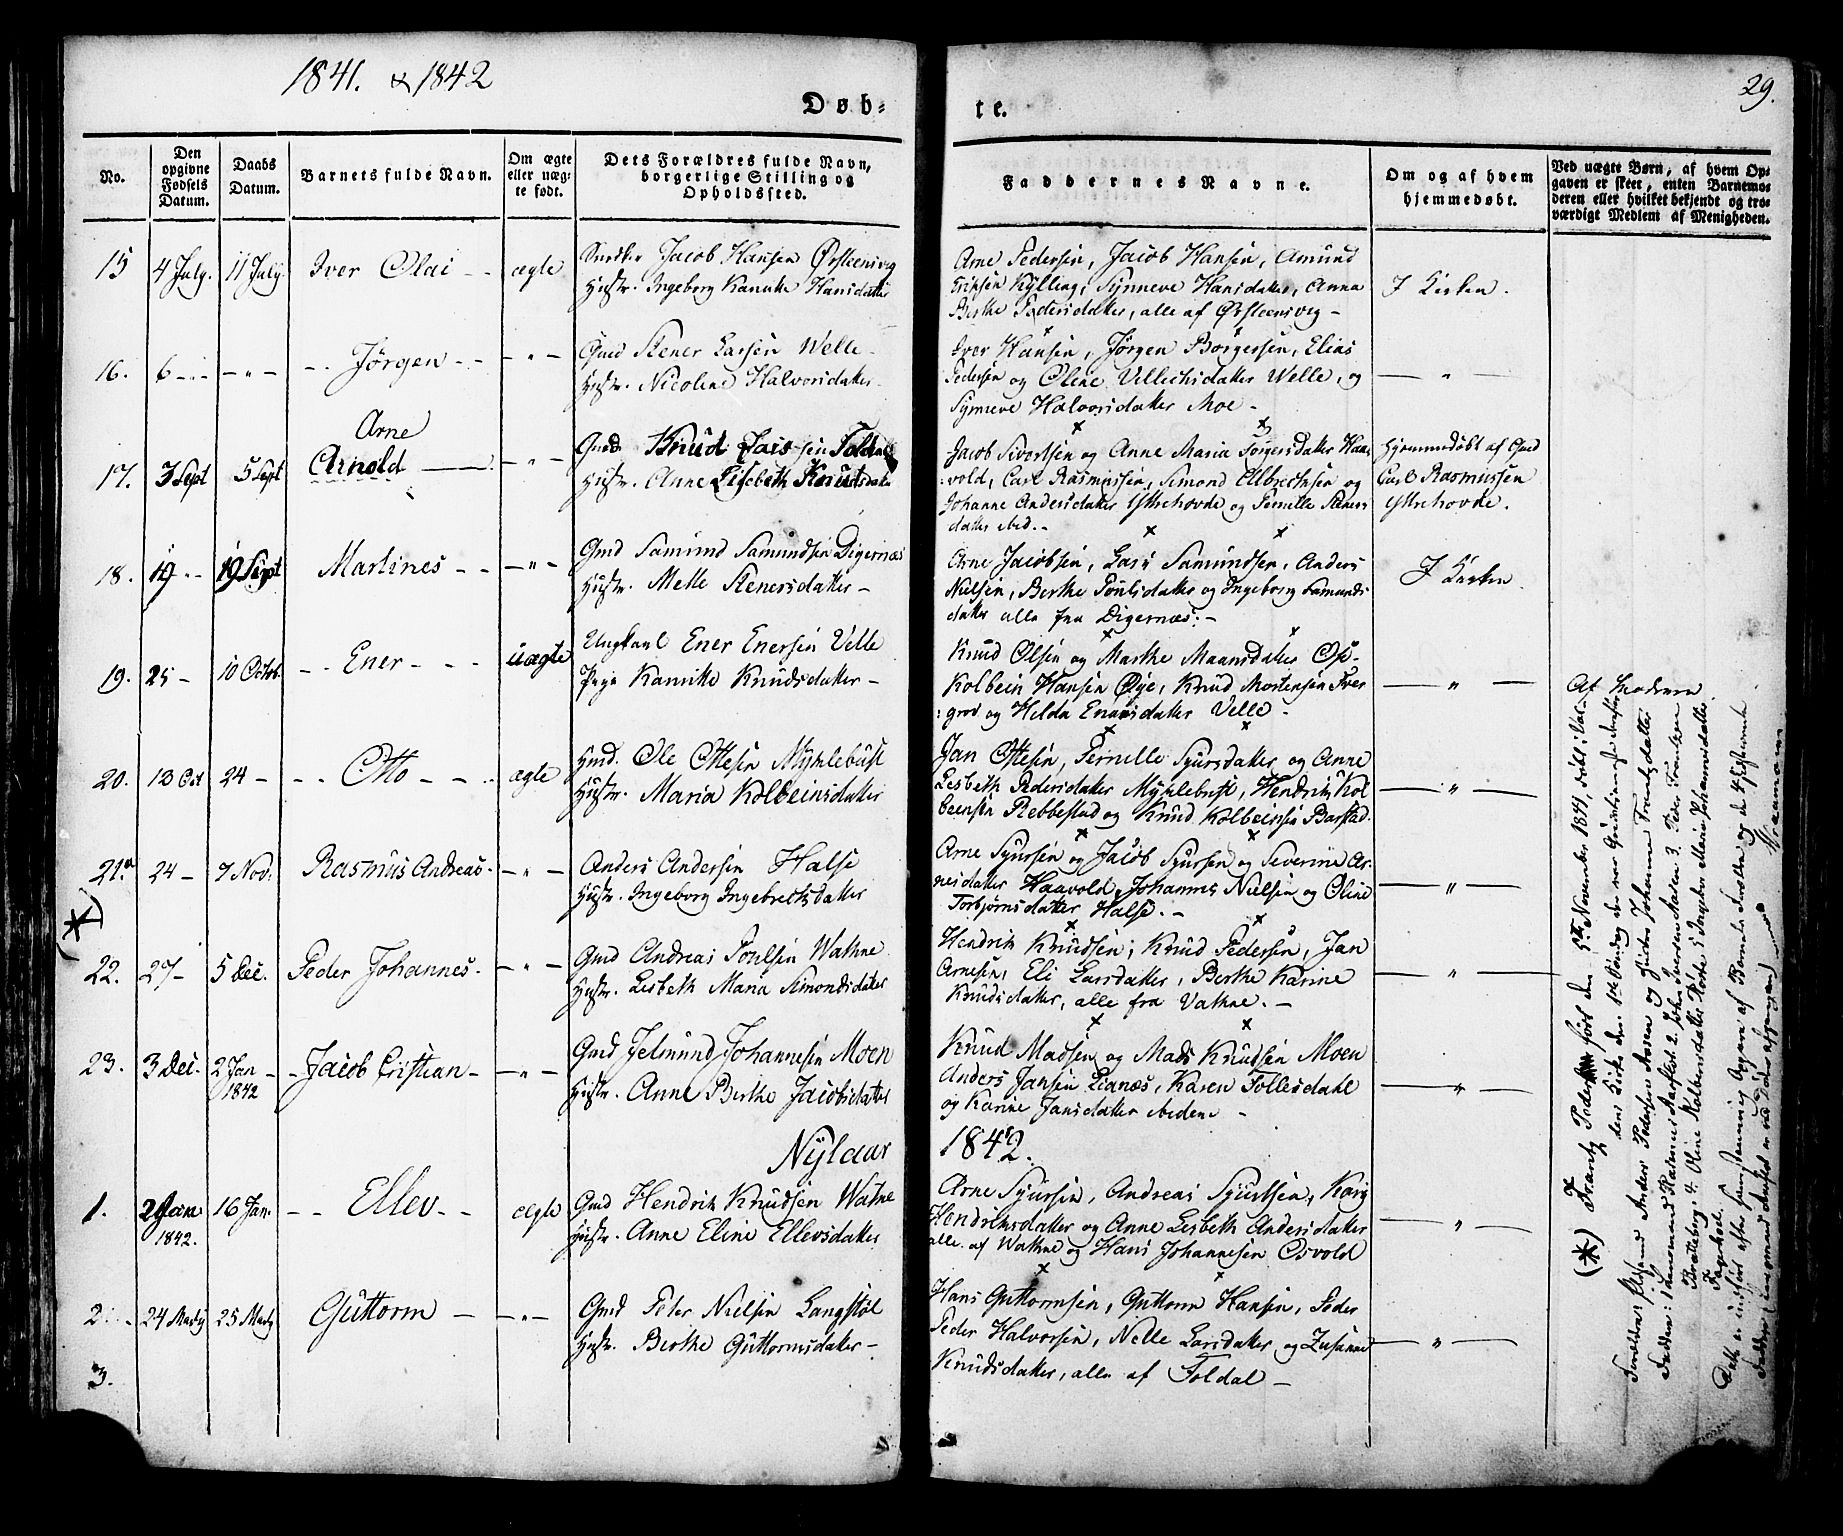 1841. & 1842
29.
Døb-
te.
No.
Den opgivne Fødsels Datum.
Daabs Datum.
Barnets fulde Navn.
Om ægte eller uæg-te født.
Dets Forældres fulde Navn, borgerlige Stilling og Opholdssted.
Faddernes Navne.
Om og af hvem hjemmedøbt.
Ved uægte Børn, af hvem Op-
gaven er skeet, enten Barnemo-
deren eller hvilket bekjendt og tro-
værdigt Medlem af Menigheden.
15 4 July. 11 July. Iver Olai - - ægte
Jacob Hansen Ørsteensvig
Hustr. Ingeborg Hansdatter
Arne Pedersen, Jacob Hansen, Amund
Kylling, Synneve Hansdatter, Anna
Berthe Pedersdatter, alle af Ørsteensvig -
I Kirken.
16. 6 - - - " - - - Jørgen - - - " -
Gmd Stener Larsen Welle -
Hustr. Nicoline Halvorsdatter -
Iver Hansen, Jørgen Borgersen, Elias
Pedersen og Oline Villechsdatter Welle, og
Synneve Halvorsdatter Moe -
- " -
Arne
17. 3 Sept 5 Sept Arnold - " -
Gmd Knud Larssen Foldal
Hustr. Anne Lisebeth Knudsdatter
Jacob Sivertsen og Anne Maria Jørgensdatter Haa-
vold, Carl Rasmussen, Simond Elbrechsen og
Johanne Andersdatter Ytrehovde og Pernille Steners
datter ibid. -
Hjemmedøbt af Gmd
Carl Rasmussen
Ytrehovde.
18. 19 - - 19 Sept Martines - - - " -
Gmd Samund Samundsen Digernæs
Hustr. Mette Stenersdatter -
Arne Jacobsen, Lars Samundsen, Anders
Nielsen, Berthe Poulsdatter og Ingeborg Samunds
datter alle fra Digernæs. -
I Kirken.
19. 25 - 10 Octob. - - Ener - - - uægte
Ungkarl Ener Enersen Velle
Pige Kanutte Knudsdatter -
Knud Olsen og Marthe Maansdatter Ose-
Kolbein Hansen Øye, Knud Mortensen Iver
grod og Helda Enersdatter Velle -
- " -
Af Moderen.
20. 12 Oct 24 - - - Otto - - - ægte
Hmd. Ole Ottesen Myklebust
Hustr. Maria Kolbeinsdatter
Jan Ottesen, Pernelle Syursdatter og Anne
Lisbeth Pedersdatter Myklebust, Hendrik Kol
beensen Rebbestad og Knud Kolbeinsen Barstad.
- " -
21. 24 - 7 Nov: Rasmus Andreas - - " -
Anders Andersen Halse
Hustr. Ingeborg Ingebrectsdatter
Arne Syursen og Jacob Syursen og Severine Ar-
nesdatter Haavold, Johannes Nielsen og Oline
Torbjørnsdatter Halse. -
- " -
(*)
22. 27 - 5 Dec. Peder Johannes. - " -
Gmd Andreas Poulsen Watne
Hustr. Lisbeth Maria Simondsdatter
Hendrik Knudsen, Knud Pedersen, Jan
Arnesen, Eli Larsdatter, Berthe Karine
Knudsdatter, alle fra Vatne. -
- " -
23. 3 Dec. 2 Jan 1842 - - Jacob Cristian - - " -
Gmd Jetmund Johannesen Moen
Hustr. Anne Berthe Jacobsdatter
Knud Madsen og Mads Knudsen Moen
Anders Jansen Lianæs, Karen Follesdahl
og Karine Jansdatter ibidem -
- " -
Nytaar 1842.
1. 2 Jan 1842. 16 Jan. - - Ellev - - ægte
Gmd Hendrik Knudsen Watne
Hustr. Anne Eline Ellevsdatter
Arne Syursen, Andreas Syurtsen, Kary
Hendriksdatter og Anne Lisbeth Andersdatter
alle af Watne og Hans Johannesen Osvold
- " -
2. - 24 Marty 25 Marty Guttorm - - " -
Gmd Peter Nielsen Langstøl
Hustr. Berthe Guttormsdatter -
Hans Guttormsen, Guttorm Hansen, Peder
Peder Halvorsen, Nelle Larsdatter og Susanne
Knudsdatter, alle af Foldal -
- " -
3.
(*) Frantz Peder født den 5te November 1841, døbt i Vol-
dens Kirke den 1ste Søndag
Forældre: Anders Pedersen Aasen og Hustru Johanne Frantzdatter
Faddere: 1 Rasmus Aarflot 2. John Sivertsen Aasen 3. Peder
Bratteberg 4. Oline Kolbensdatter 5 Marie Johannesdatter
Dette er indført efter af Barnets Forældre og de
Aarmann